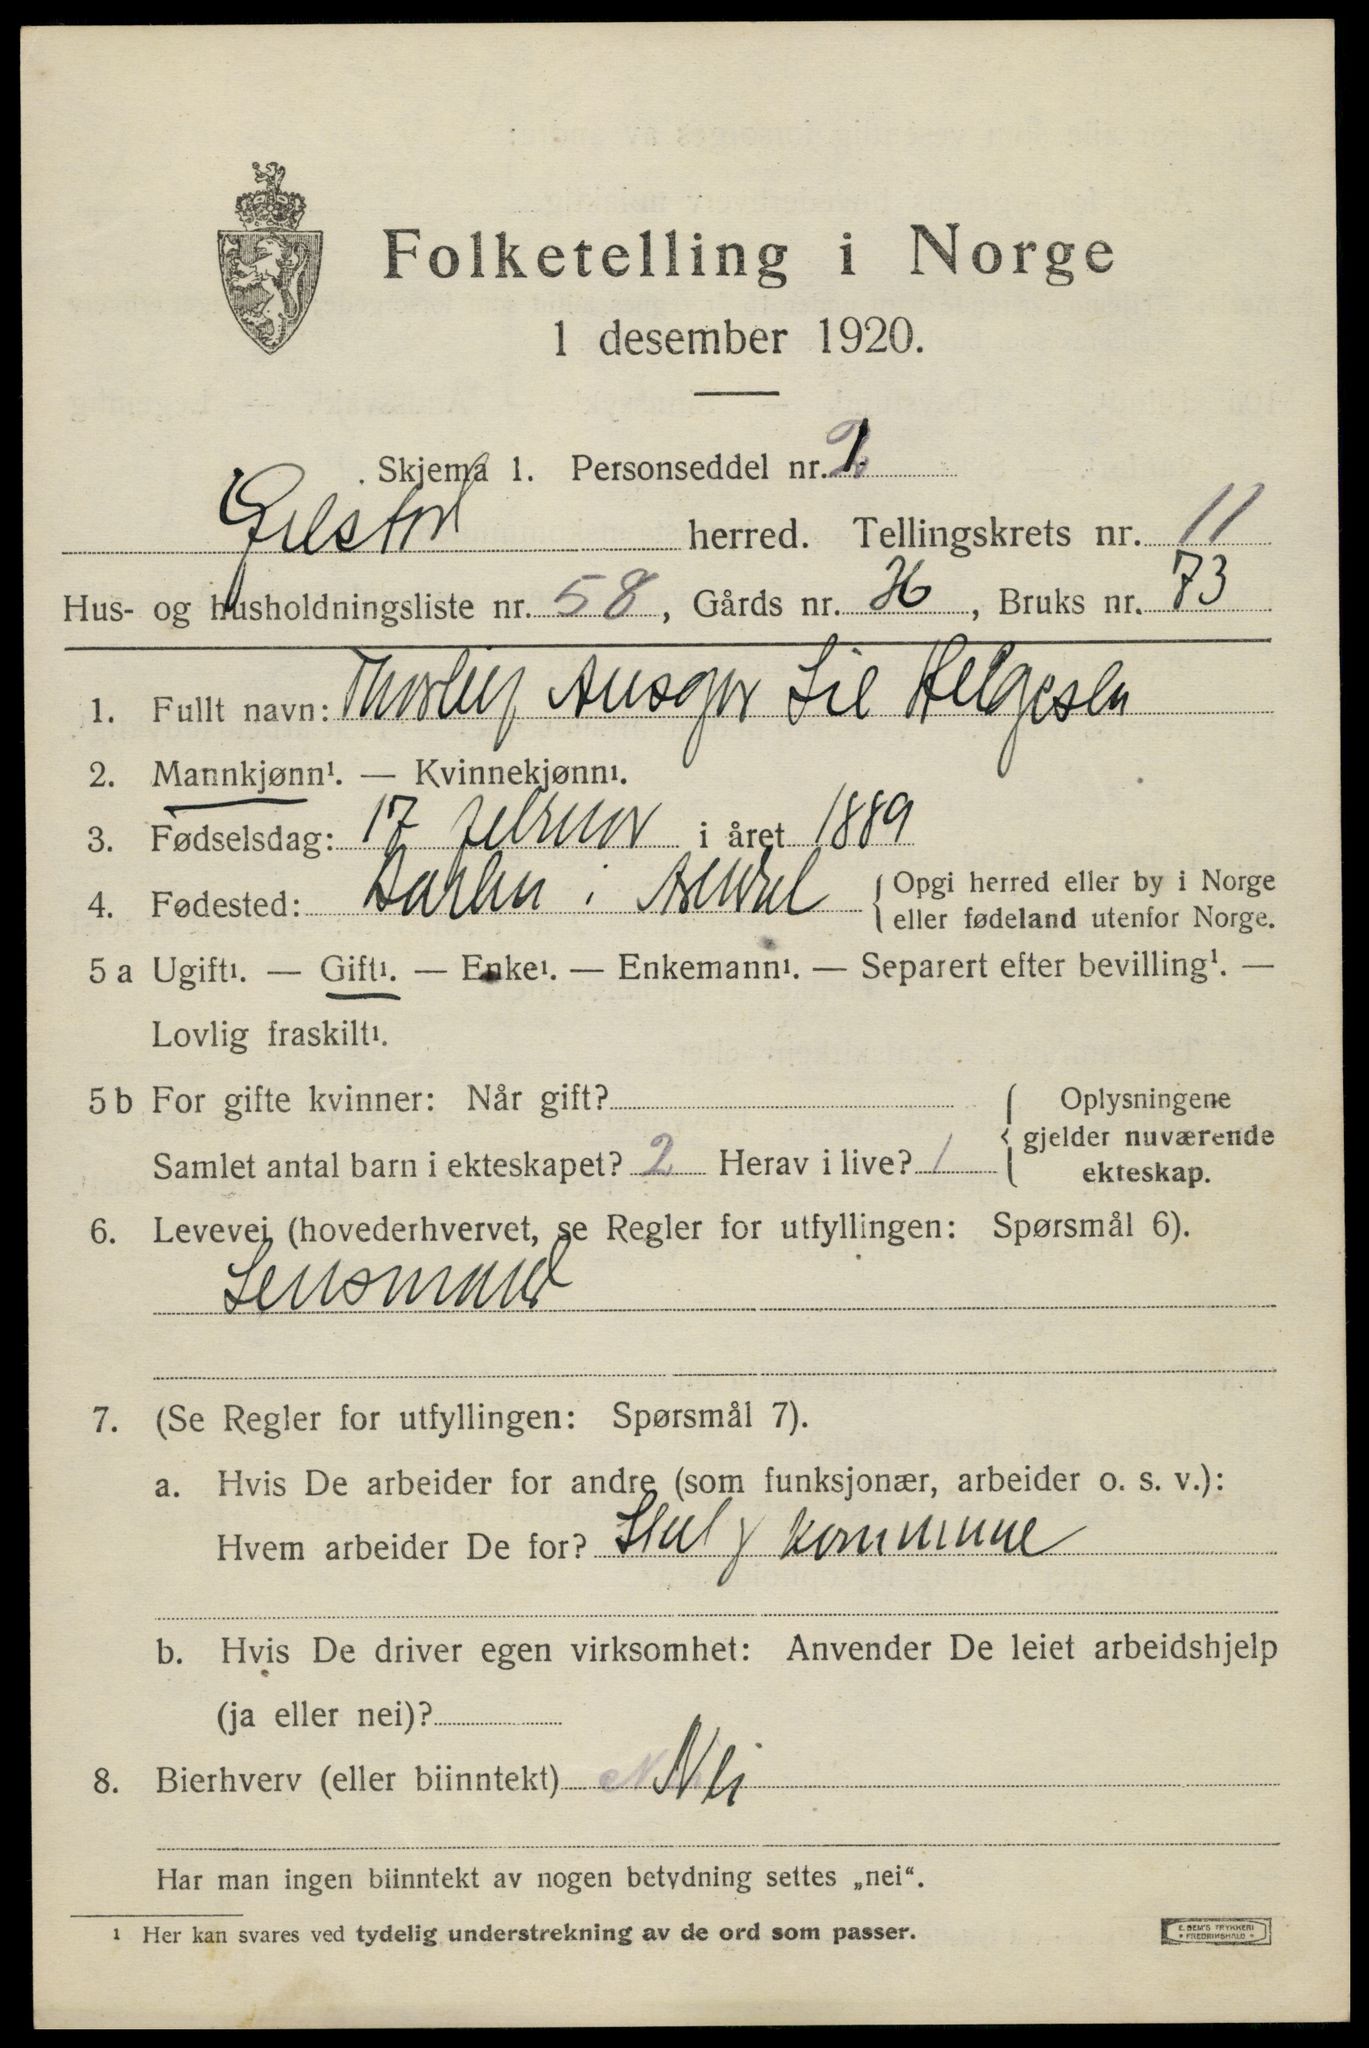 Folketelling i Norge
1 desember 1920.
Skjema 1. Personseddel nr. 1
Gjelstad herred. Tellingskrets nr. 11
Hus- og husholdningsliste nr. 58, Gårds nr. 36, Bruks nr. 73
1. Fullt navn: Thorleif Ansgar Lie Helgesen
2. Mannkjønn¹. — Kvinnekjønn¹.
3. Fødselsdag: 17 februar i året 1889
4. Fødested: i Arendal { Opgi herred eller by i Norge
eller fødeland utenfor Norge.
5 a Ugift¹. — Gift¹. — Enke¹. — Enkemann¹. — Separert efter bevilling¹. —
Lovlig fraskilt¹.
5 b For gifte kvinner: Når gift? { Oplysningene
gjelder nuværende
ekteskap.
Samlet antal barn i ekteskapet? 2 Herav i live? 1
6. Levevei (hovederhvervet, se Regler for utfyllingen: Spørsmål 6).
Lensmand
7. (Se Regler for utfyllingen: Spørsmål 7).
a. Hvis De arbeider for andre (som funksjonær, arbeider o. s. v.):
Hvem arbeider De for? Stat & kommune
b. Hvis De driver egen virksomhet: Anvender De leiet arbeidshjelp
(ja eller nei)?
8. Bierhverv (eller biinntekt) Nei
Har man ingen biinntekt av nogen betydning settes „nei“.
¹ Her kan svares ved tydelig understrekning av de ord som passer.
E. SEM'S TRYKKERI
FREDRIKSHALD